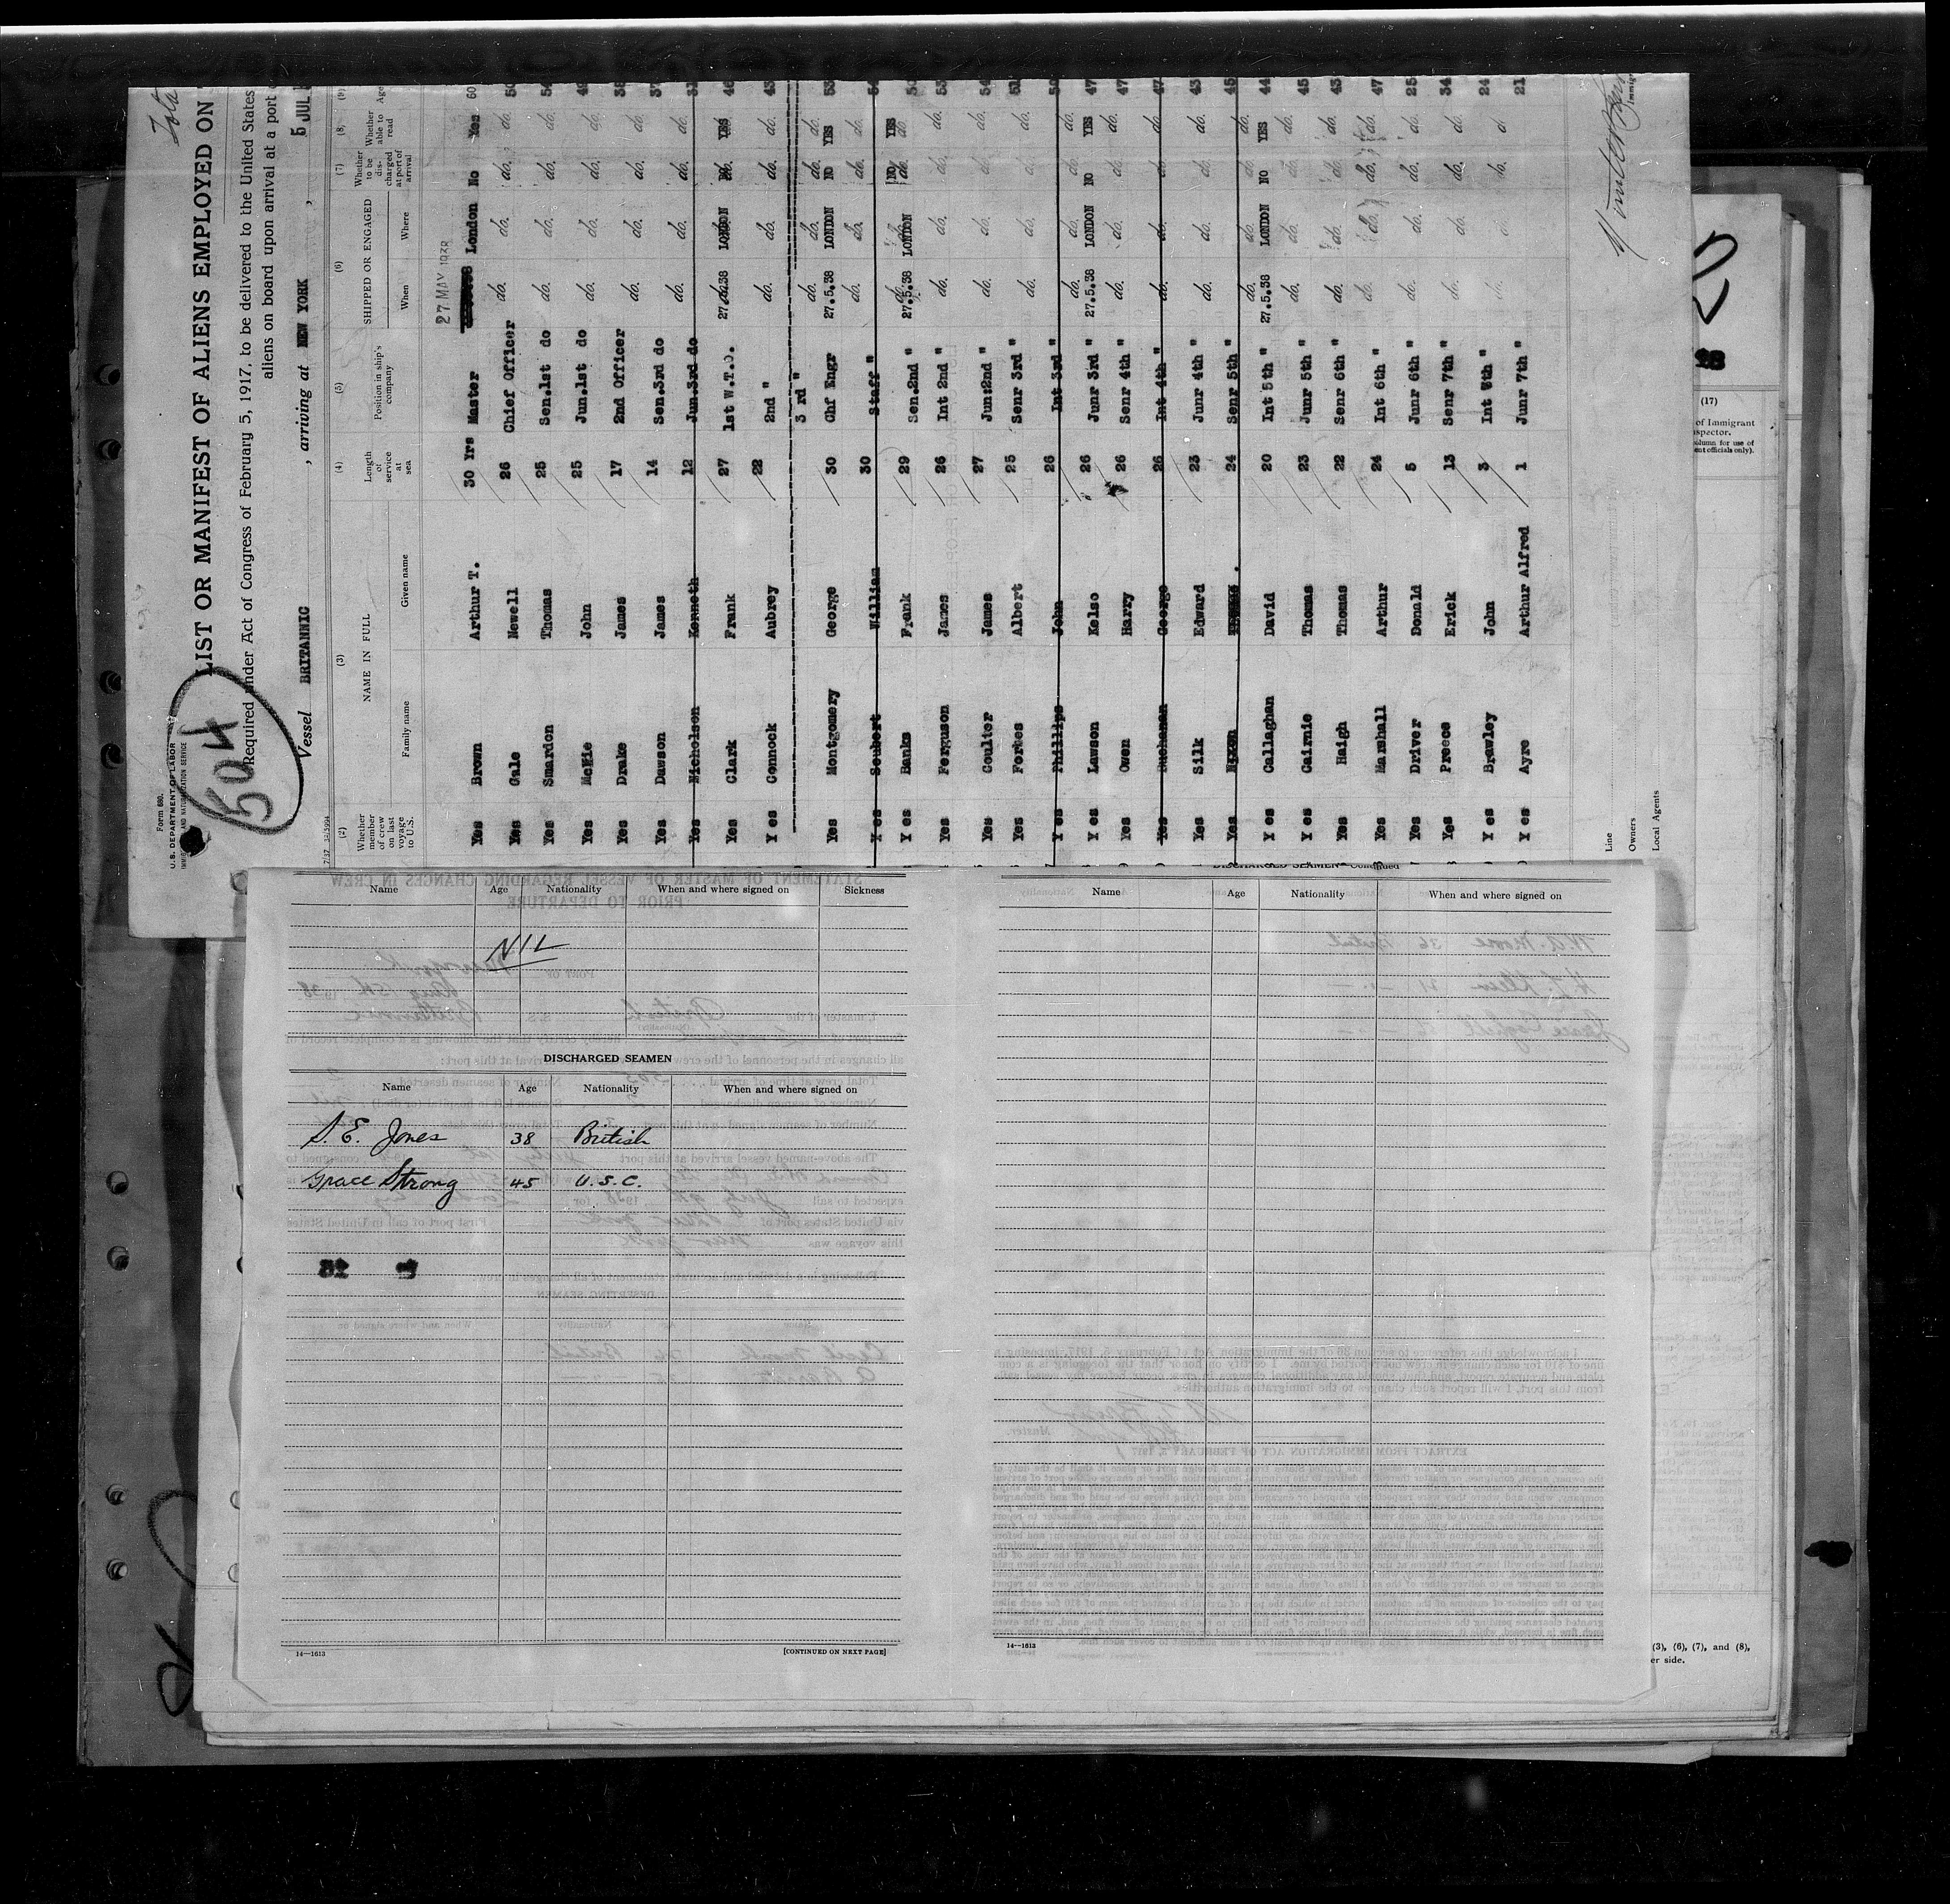 Form 680.
U.S. DEPARTMENT OF LABOR
504
LIST OR MANIFEST OF ALIENS EMPLOYED ON
Required under Act of Congress of February 5, 1917, to be delivered to the United States
aliens on board upon arrival at a port
Vessel BRITANNIC , arriving at NEW YORK , 5 JUL
(2) (3) (4) (5) (6) (7) (8) (9)
Whether member of crew on last voyage to U.S. NAME IN FULL Family name Given name Length of service at sea Position in ship's company SHIPPED OR ENGAGED When Where Whether to be discharged at port of arrival Whether able to read Age
27 MAY 1938
Yes Brown Arthur T. 30 Yrs Master London No Yes 60
Yes Gale Newell 26 Chief Officer do. do. do. do. 50
Yes Smardon Thomas 25 Sen.1st do do. do. do. do. 54
Yes McKie John 25 Jun.1st do do. do. do. do. 49
Yes Drake James 17 2nd Officer do. do. do. do. 38
Yes Dawson James 14 Sen.3rd do do. do. do. do. 37
Yes Nicholson Kenneth 12 Jun.3rd do do. do. do. do. 31
Yes Clark Frank 27 1st W.T.O. LONDON YES 46
Yes Connock Aubrey 22 2nd " do. do. do. do. 43
3 rd " do. do. do. do.
Yes Montgomery George 30 Chf Engr 27.5.38 LONDON NO YES 53
Yes Seubert William 30 Staff " do. do. do. do.
Yes Banks Frank 29 Sen.2nd " 27.5.38 LONDON NO YES
Yes Ferguson James 26 Int 2nd " do. do. do. do. 53
Yes Coulter James 27 Jun:2nd " do. do. do. do. 54
Yes Forbes Albert 25 Senr 3rd " do. do. do. do.
Yes Phillips John 26 Int 3rd " do. do. do. do. 50
Yes Lawson Kelso 26 Junr 3rd " 27.5.38 LONDON NO YES 47
Yes Owen Harry 26 Senr 4th " do. do. do. do. 47
Yes Buchanan George 26 Int 4th " do. do. do. do. 47
Yes Silk Edward 23 Junr 4th " do. do. do. do. 43
Yes Nixon 24 Senr 5th " do. do. do. do. 45
Yes Callaghan David 20 Int 5th " 27.5.38 LONDON NO YES 44
Yes Cairnie Thomas 23 Junr 5th " do. do. do. do. 45
Yes Haigh Thomas 22 Senr 6th " do. do. do. do. 43
Yes Marshall Arthur 24 Int 6th " do. do. do. do. 47
Yes Driver Donald 5 Junr 6th " do. do. do. do. 25
Yes Preece Erick 13 Senr 7th " do. do. do. do. 34
Yes Brawley John 3 Int 7th " do. do. do. d. 24
Yes Ayre Arthur Alfred 1 Junr 7th " 21
Line
Owners
Local Agents
(17)
of Immigrant
(3), (6), (7), and (8),
er side.
Name Age Nationality When and where signed on Sickness
NIL
DISCHARGED SEAMEN
Name Age Nationality When and where signed on
S. E. Jones 38 British
Grace Strong 45 U.S.C.
14—1613 [CONTINUED ON NEXT PAGE]
DISCHARGED SEAMEN—Continued
Name Age Nationality When and where signed on
14—1613